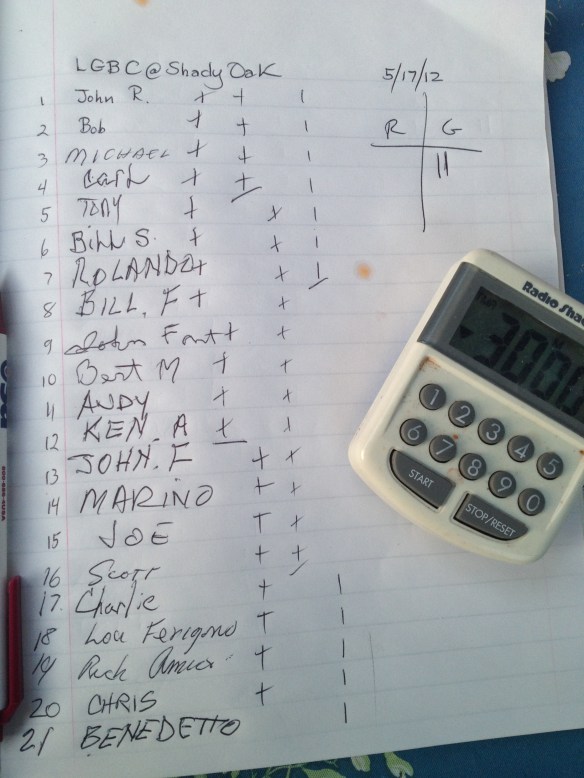 LGBC@Shady Oak
5/17/12
1 John R. + + |
R G
2 Bob + + |
||
3 MICHAEL + + |
4 Carl + + |
5 TONY + + |
6 Bill S. + + |
7 ROLANDO + + |
8 BILL. F + +
9 John Font + +
10 Bert M + +
11 ANDY + +
12 KEN. A + +
13 JOHN. F + +
14 MARINO + +
15 JOE + +
16 Scott + +
17. Charlie + |
18 Lou Ferigno + |
19 Rick + |
20 CHRIS + |
21 BENEDETTO |
Radio Sha
3000
1 2 3 4 5
6 7 8 9 0
START
STOP/RESET